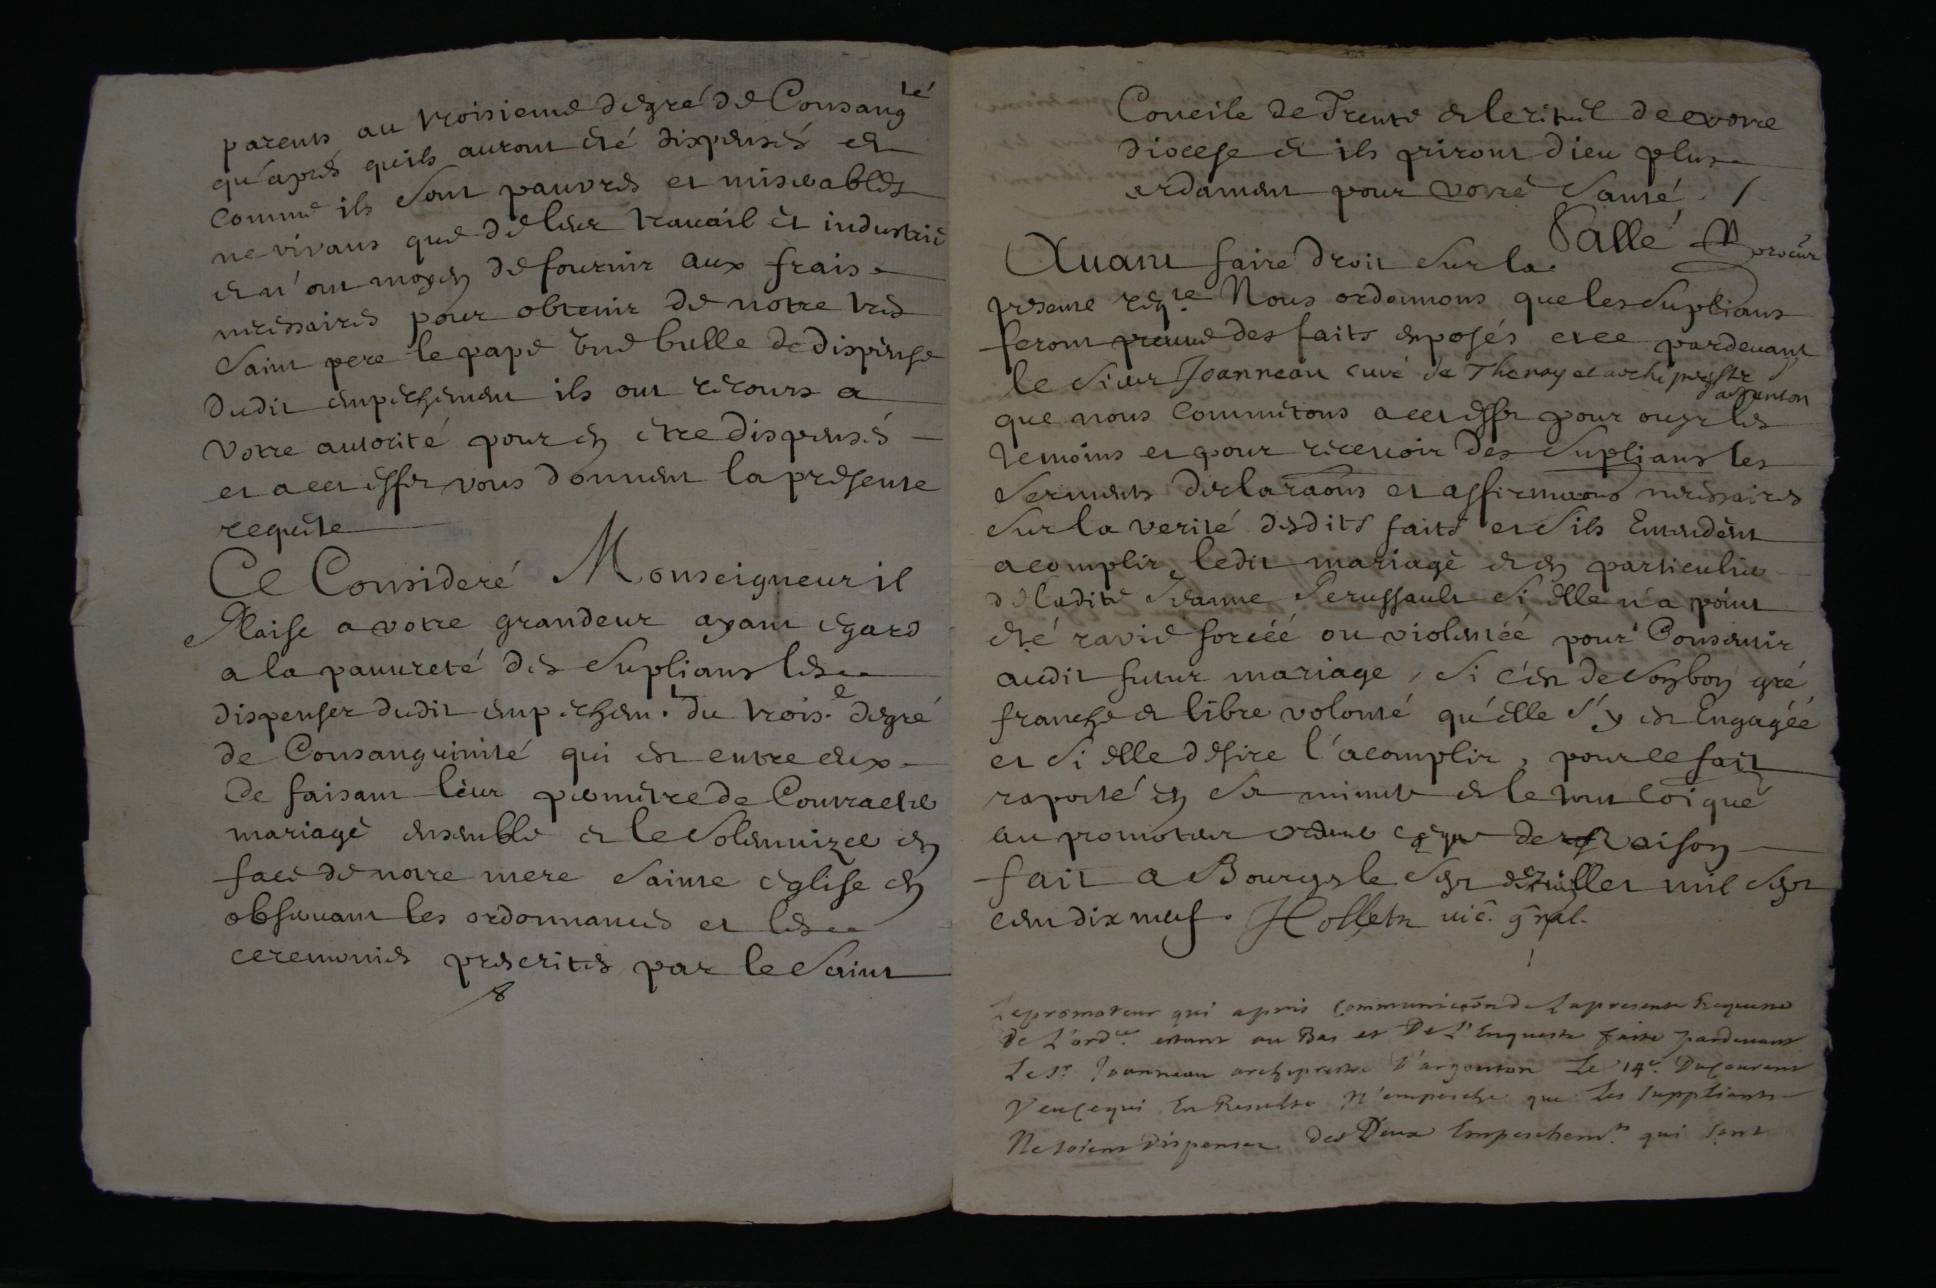 parents au troisieme degré de Consang.té
qu'après quils auront été dispensés et
comme ils sont pauvres et miserables
ne vivans que de leur travail et industrie
et n'ont moyen de fournir aux frais
necessaires pour obtenir de notre tres
saint pere le pape une bulle de dispense
dudit empechement ils ont recours a
votre autorité pour en être dispensés
et a cet effet vous donnent la presente
requête
Ce Consideré Monseigneur il
Plaise a votre grandeur ayant egard
a la pauvreté des suplians les
dispenser dudit empechem.t du trois.e degré
de Consanguinité qui est entre eux
Ce faisant leur permettre de Contracter
mariage ensemble et le solemnizer en
face de notre mere sainte église en
observant les ordonnances et les
ceremonies prescrites par le saint
Concile de Trente et le rituel de votre
diocese et ils priront dieu plus
ardament pour votre santé /.
Pallé Procur
Avant faire droit sur la
presente req.te Nous ordonnons que les suplians
feront preuve des faits exposés en ce pardevant
le sieur Joanneau curé de Thenay et archiprestre
d'argenton
que nous commetons a cet effet pour ouyr les
temoins et pour recevoir des suplians les
sermens declaraons et affirmaons necessaires
sur la verité desdits faits et s'ils Entendent
acomplir ledit mariage et en particulier
de ladite Jeanne Perussault si elle n'a point
été ravie forcéé ou violentéé pour Consentir
audit futur mariage, si c'est de son bon gré
franche et libre volonté qu'elle s'y est Engagéé
et si elle desire l'acomplir, pour ce fait
raporté et le tout coïqué
au promoteur ordonné ce que de raison
fait a Bourges le sept juillet mil sept
cent dix neuf. vic. gnal.
Le promoteur qui apris Communicaon de La presente Requeste
De L'ord.ce estant au Bas et De L'Enqueste faite pardevant
Le s.r Joanneau archiprestre D'argenton Le 14e. Du courant
Veu ce qui En Resulte N'empesche que Les suppliants
Ne soient Dispensez Des Deux Empeschem.ts qui sont